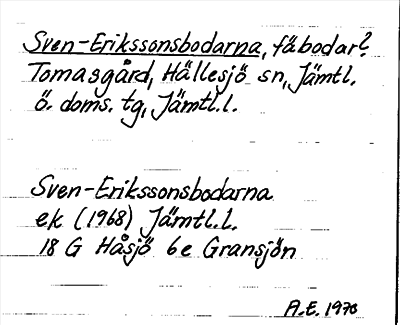 Sven-Erikssonsbodarna, fäbodar?
Tomasgård, Hällesjö sn, Jämtl.
ö. doms. tg, Jämtl.l.
Sven-Erikssonsbodarna
ek (1968) Jämtl.l.
18 G Håsjö 6e Gransjön
A.E. 1970